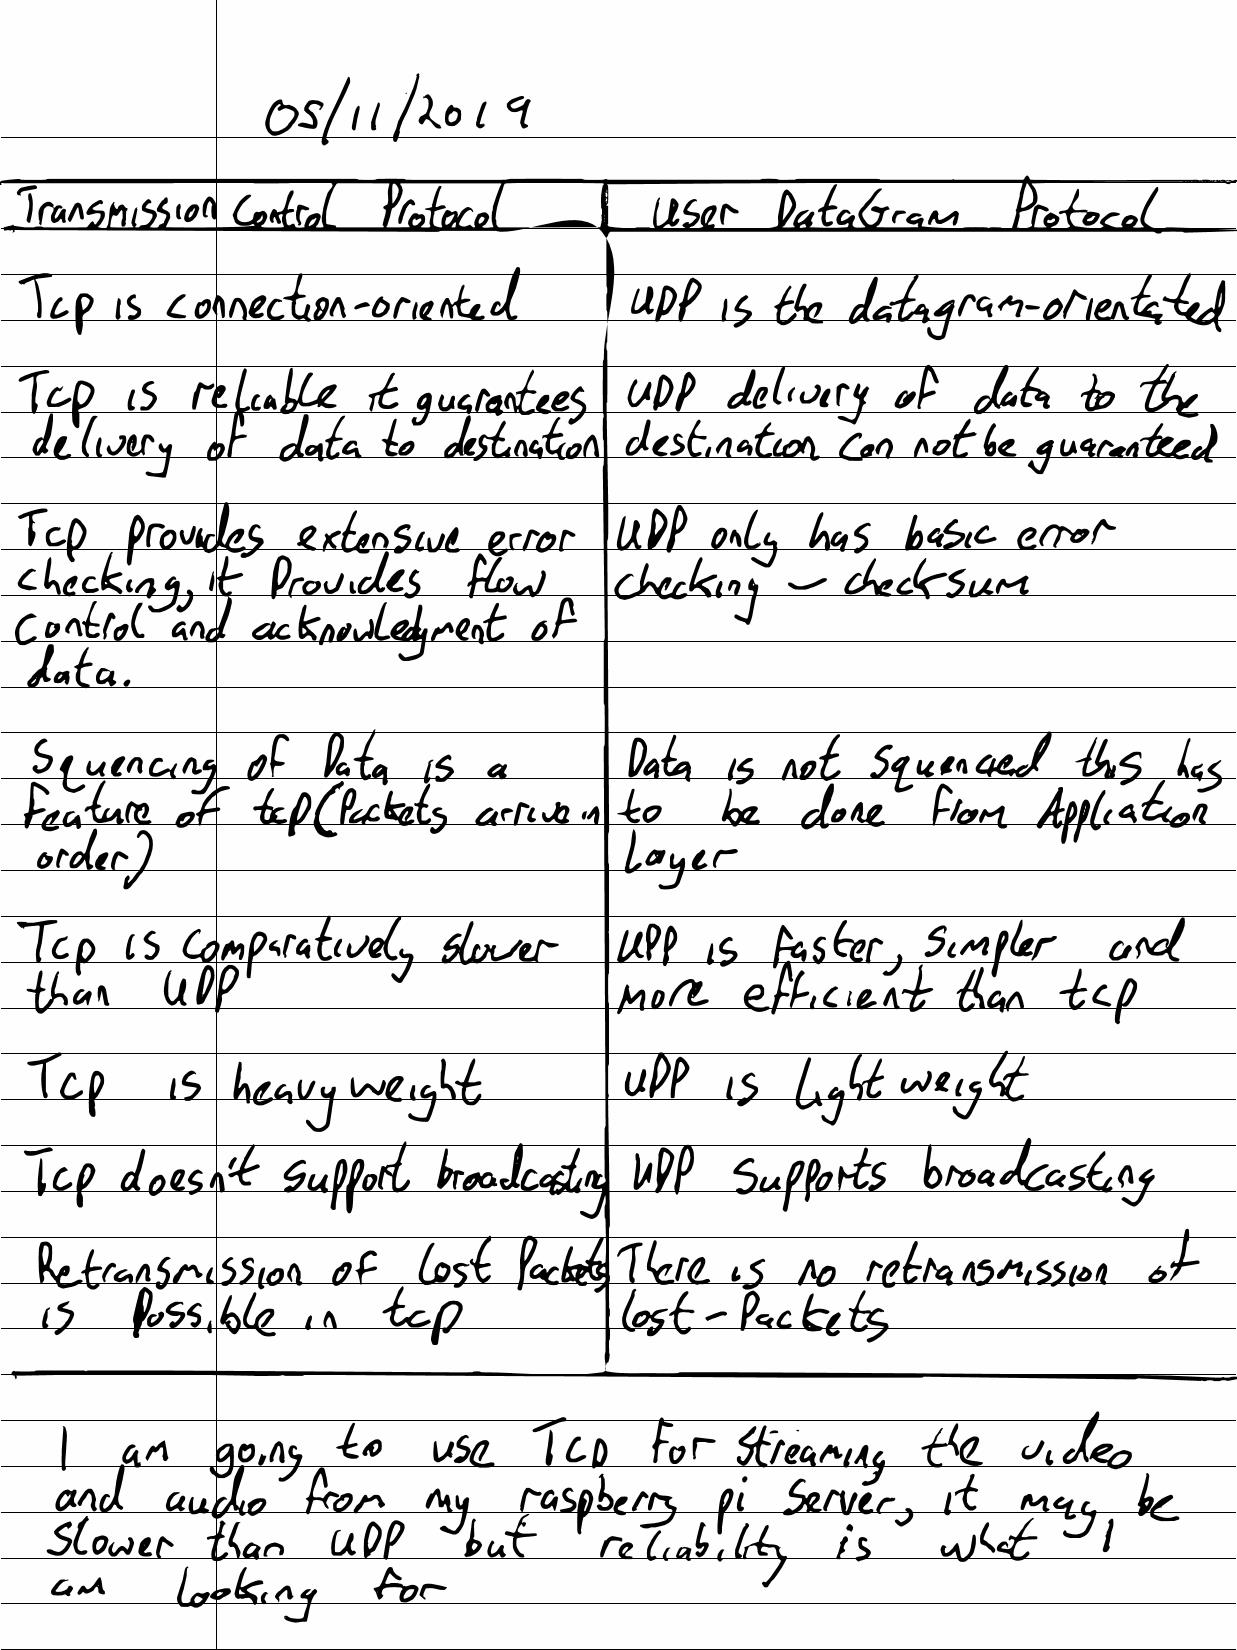 05/11/2019
Transmission Control Protocol
User DataGram Protocol
Tcp is connection-oriented
UDP is the datagram-orientated
Tcp is reliable it guarantees
delivery of data to destination
UDP delivery of data to the
destination can not be guaranteed
Tcp provides extensive error
checking, it Provides flow
control and acknowledgment of
data.
UDP only has basic error
checking - checksum
Squencing of Data is a
feature of tcp (Packets arrive in
order)
Data is not squenced this has
to be done from Application
Layer
Tcp is comparatively slower
than UDP
UDP is faster, simpler and
more efficient than tcp
Tcp is heavy weight
UDP is light weight
Tcp doesn't support broadcasting
UDP supports broadcasting
Retransmission of lost Packets
is Possible in tcp
There is no retransmission of
lost-Packets
I am going to use TCP for streaming the video
and audio from my raspberry pi server, it may be
slower than UDP but reliability is what I
am looking for